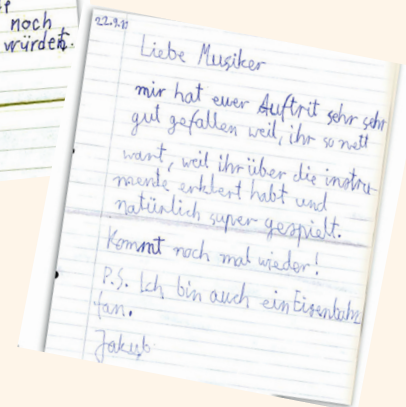 noch
würdet.
22.9.11
Liebe Musiker
mir hat euer Auftrit sehr sehr
gut gefallen weil, ihr so nett
wart, weil ihr über die instru-
mente erklert habt und
natürlich super gespielt.
Kommt noch mal wieder!
P.S. Ich bin auch ein Eisenbahn
fan.
Jakub